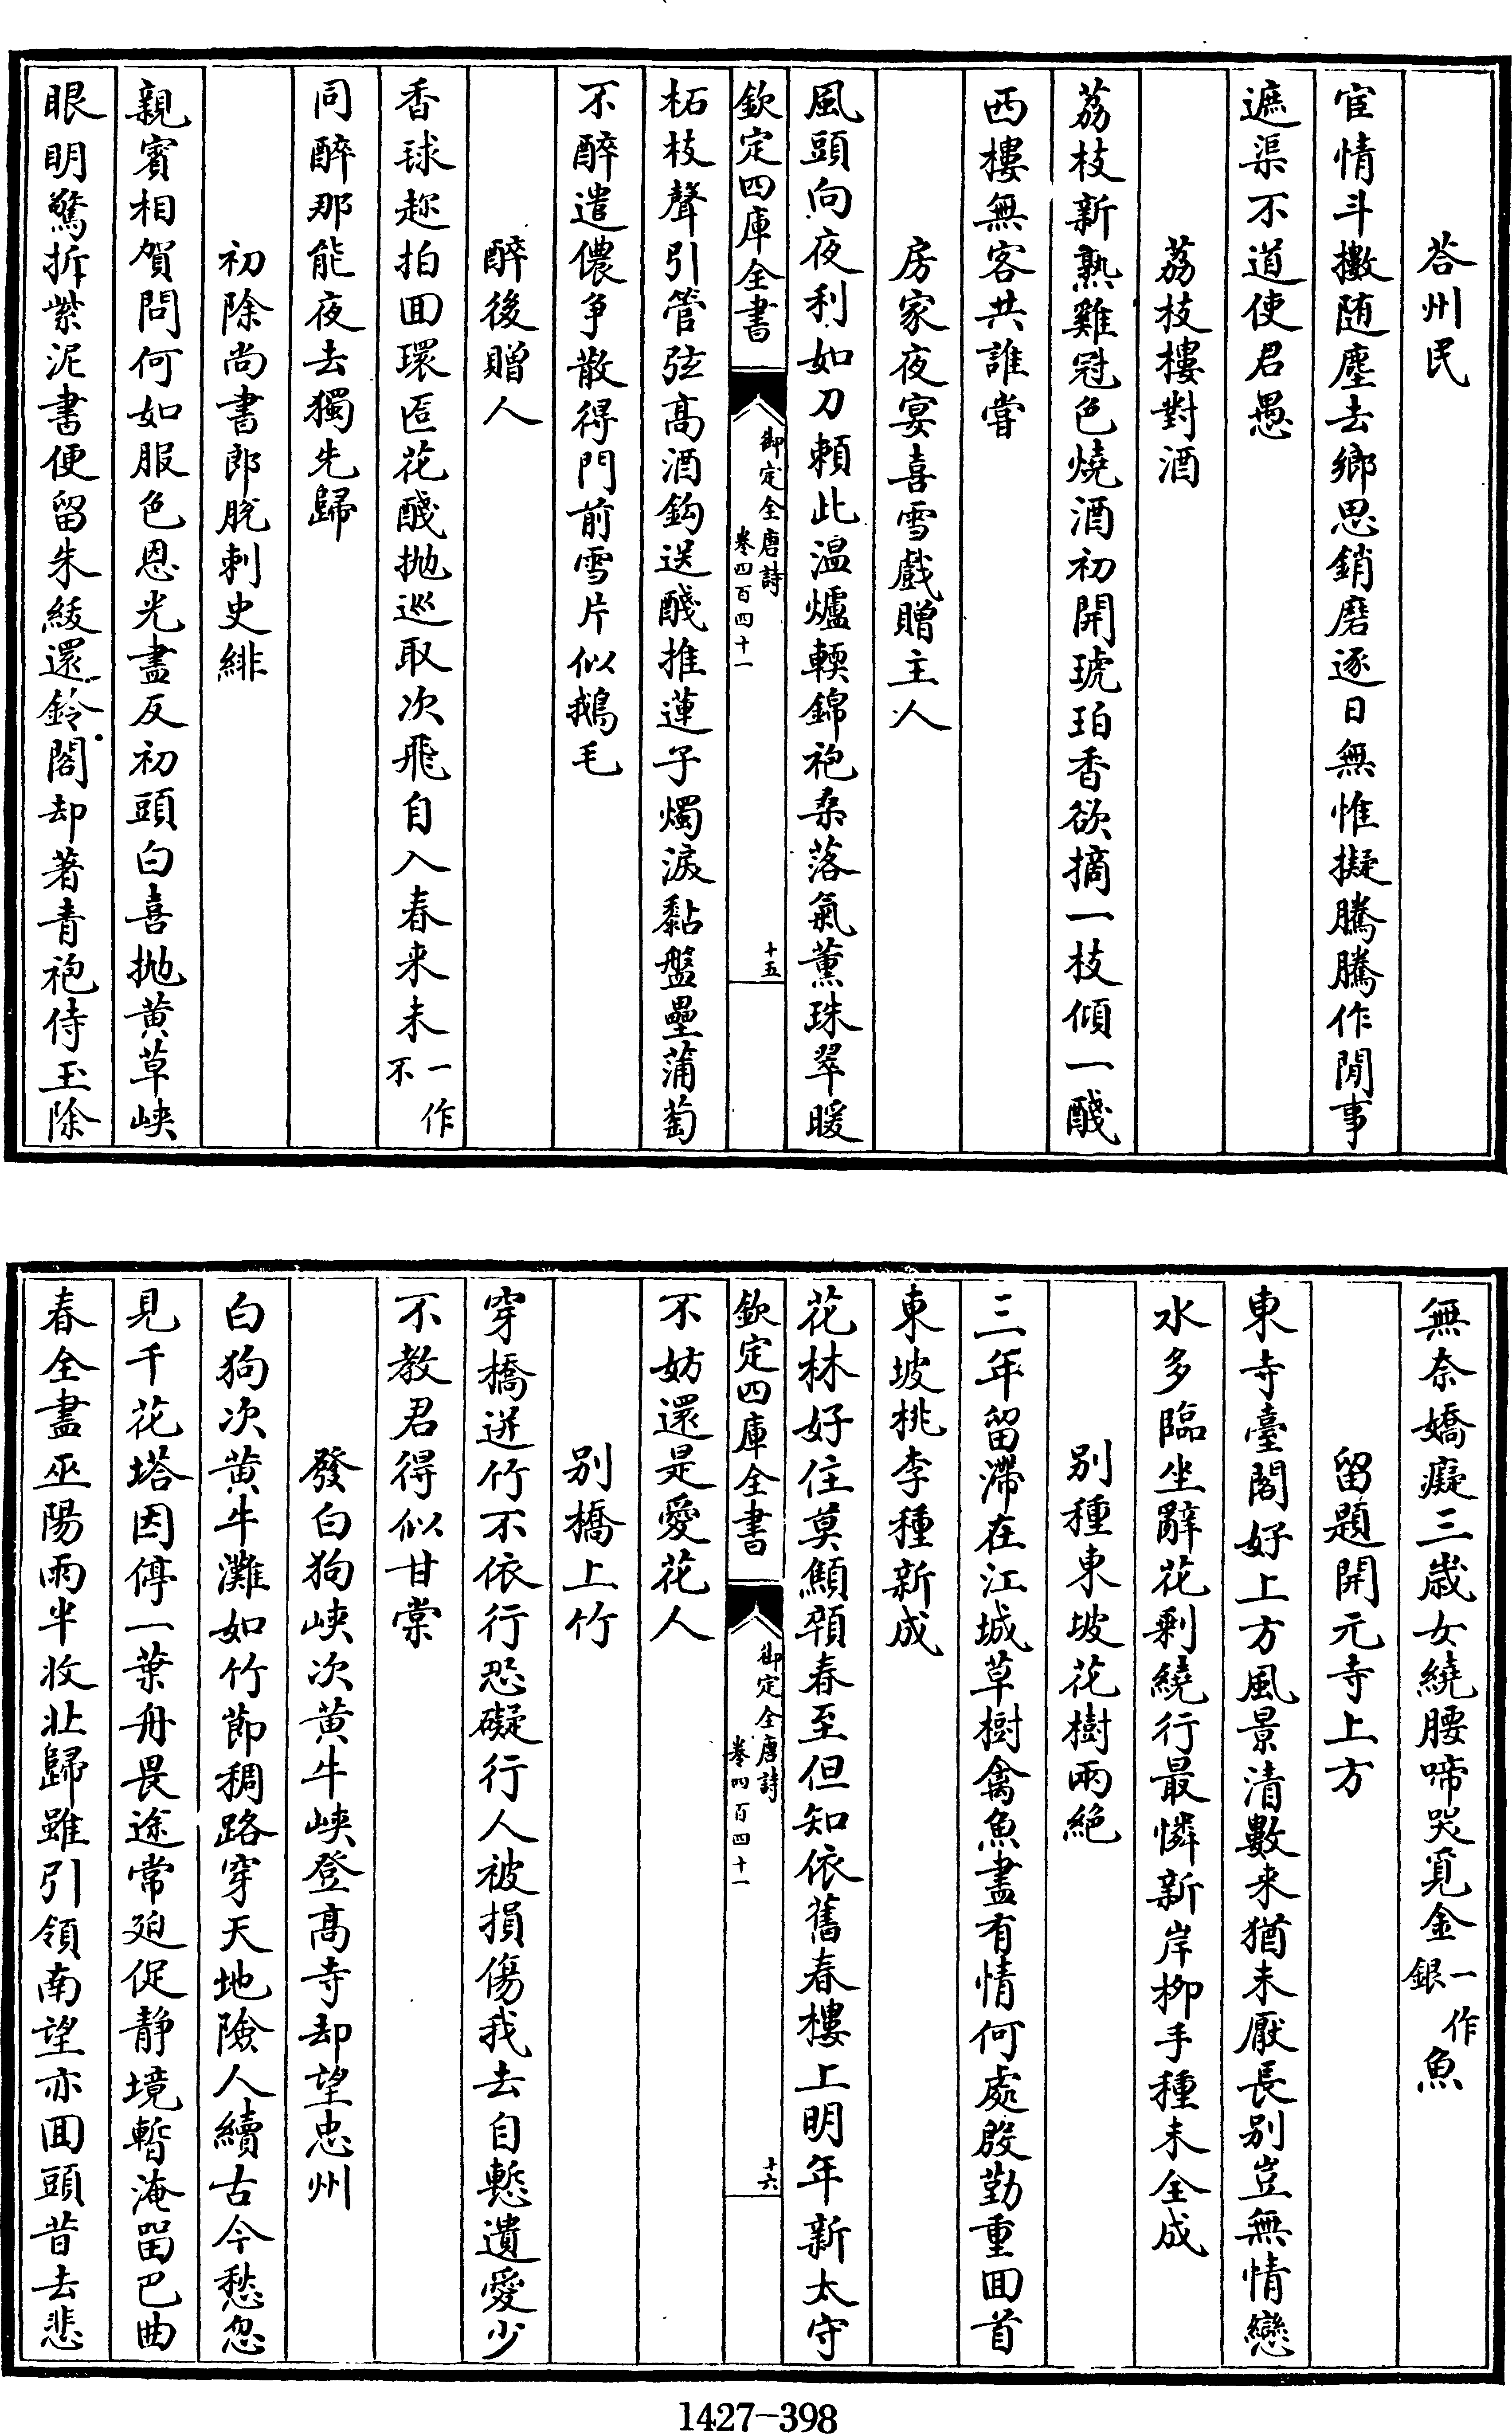 荅州民
宦情斗擻随塵去鄉思銷磨逐日無惟擬騰騰作閒事
遮渠不道使君愚
荔枝樓對酒
荔枝新熟雞冠色燒酒初開琥珀香欲摘一枝傾一醆
西樓無客共誰嘗
房家夜宴喜雪戲贈主人
風頭向夜利如刀賴此温爐輭錦袍桑落氣薫珠翠暖
欽定四庫全書
御定全唐詩
卷四百四十一
十五
柘枝聲引管弦髙酒鈎送醆推蓮子燭淚黏盤壘蒲萄
不醉遣儂爭散得門前雪片似鵝毛
醉後贈人
香毬趂拍囬環匼花醆抛巡取次飛自入春来未一作不
同醉那能夜去獨先歸
初除尚書郎脱刺史緋
親賓相賀問何如服色恩光盡反初頭白喜抛黄草峽
眼明驚拆紫泥書便留朱紱還鈴閣却著青袍侍玉除
無奈嬌癡三歳女繞腰啼哭覓金一作銀魚
留題開元寺上方
東寺臺閣好上方風景清數来猶未厭長别豈無情戀
水多臨坐辭花剰繞行最憐新岸栁手種未全成
别種東坡花樹兩絶
三年留滯在江城草樹禽魚盡有情何處殷勤重囬首
東坡桃李種新成
花林好住莫顦顇春至但知依舊春樓上明年新太守
欽定四庫全書
御定全唐詩
卷四百四十一
十六
不妨還是愛花人
别橋上竹
穿橋迸竹不依行恐礙行人被損傷我去自慙遺愛少
不教君得似甘棠
發白狗峽次黄牛峽登髙寺却望忠州
白狗次黄牛灘如竹節稠路穿天地險人續古今愁忽
見千花塔因停一葉舟畏途常迫促静境暫淹留巴曲
春全盡巫陽雨半收北歸雖引領南望亦囬頭昔去悲
1427-398